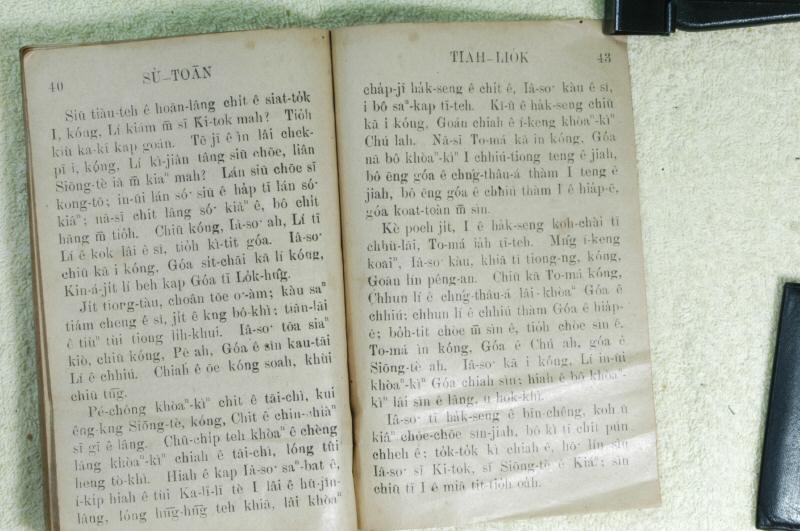 40
SÙ-TOĀN
Siū tiàu-teh ê hoān-lâng chit ê siat-to̍k
I, kóng, Lí kiám m̄ sī Ki-tok mah? Tio̍h
kiù ka-kī kap goán. Tē jī ê ìn lâi chek-
pī i, kóng, Lí kì-jiân tâng siū chōe, liân
Siōng-tè iā m̄ kiaⁿ mah? Lán siū chōe sī
kong-tō; in-ūi lán só͘ siū ê ha̍p tī lán só͘
kiâⁿ; nā-sī chit lâng só͘ kiâⁿ ê, bô chit
hāng m̄ tio̍h. Chiū kóng, Iâ-so͘ ah, Lí tī
Lí ê kok lâi ê sî, tio̍h kì-tit góa. Iâ-so͘
chiū kā i kóng, Góa si̍t-chāi kā lí kóng,
Kin-á-ji̍t lí beh kap Góa tī Lo̍k-hn̂g.
Ji̍t tiong-tàu, choân tōe o͘-àm; kàu saⁿ
tiám cheng ê sî, ji̍t ê kng bô-khì; tiān-lāi
ê tiùⁿ tùi tiong li̍h-khui. Iâ-so͘ tōa siaⁿ
kiò, chiū kóng, Pē ah, Góa ê sîn kau-tāi
Lí ê chhiú. Chiah ê ōe kóng soah, khùi
chiū tn̄g.
Pé-chóng khòaⁿ-kìⁿ chit ê tāi-chì, kui
êng-kng Siōng-tè, kóng, Chit ê chin-chiàⁿ
sī gī ê lâng. Chū-chi̍p teh khòaⁿ ê chèng
lâng khòaⁿ-kìⁿ chiah ê tāi-chì, lóng tûi
heng tò-khì. Hiah ê kap Iâ-so͘ saⁿ-bat ê,
í-ki̍p hiah ê tùi Ka-lī-lī tè I lâi ê hū-jîn-
lâng, lóng hn̄g-hn̄g teh khiā, lâi khòaⁿ
TIAH-LIO̍K
43
cha̍p-jī ha̍k-seng ê chit ê, Iâ-so͘ kàu ê sî,
i bô saⁿ-kap tī-teh. Kî-û ê ha̍k-seng chiū
kā i kóng, Goán chiah ê í-keng khòaⁿ-kìⁿ
Chú lah. Nā-sī To-má kā in kóng, Góa
nā bô khòaⁿ-kìⁿ I chhiú-tiong teng ê jiah,
bô ēng góa ê chńg-thâu-á thàm I teng ê
jiah, bô ēng góa ê chhiú thàm I ê hia̍p-ē,
góa koat-toàn m̄ sìn.
Kè poeh ji̍t, I ê ha̍k-seng koh-chài tī
chhù-lāi, To-má iáh tī-teh. Mn̂g í-keng
koaiⁿ, Iâ-so͘ kàu, khiā tī tiong-ng, kóng,
Goān lín pêng-an. Chiū kā To-má kóng,
Chhun lí ê chńg-thâu-á lâi-khòaⁿ Góa ê
chhiú; chhun lí ê chhiú thàm Góa ê hia̍p-
ē; bo̍h-tit chòe m̄ sìn ê, tio̍h chòe sìn ê.
To-má ìn kóng, Góa ê Chú ah, góa ê
Siōng-tè ah. Iâ-so͘ kā i kóng, Lí in-ūi
khòaⁿ-kìⁿ Góa chiah sìn; hiah ê bô khòaⁿ-
kìⁿ lâi sìn ê lâng, ū hok-khì.
Iâ-so͘ tī ha̍k-seng ê bīn-chêng, koh ū
kiâⁿ chōe-chōe sîn-jiah, bô kì tī chit pún
chheh ê; to̍k-to̍k kì chiah ê, hō͘ lín sìn
Iâ-so͘ sī Ki-tok, sī Siōng-tè ê Kiáⁿ; sìn
chiū tī I ê miâ tit-tio̍h oa̍h.